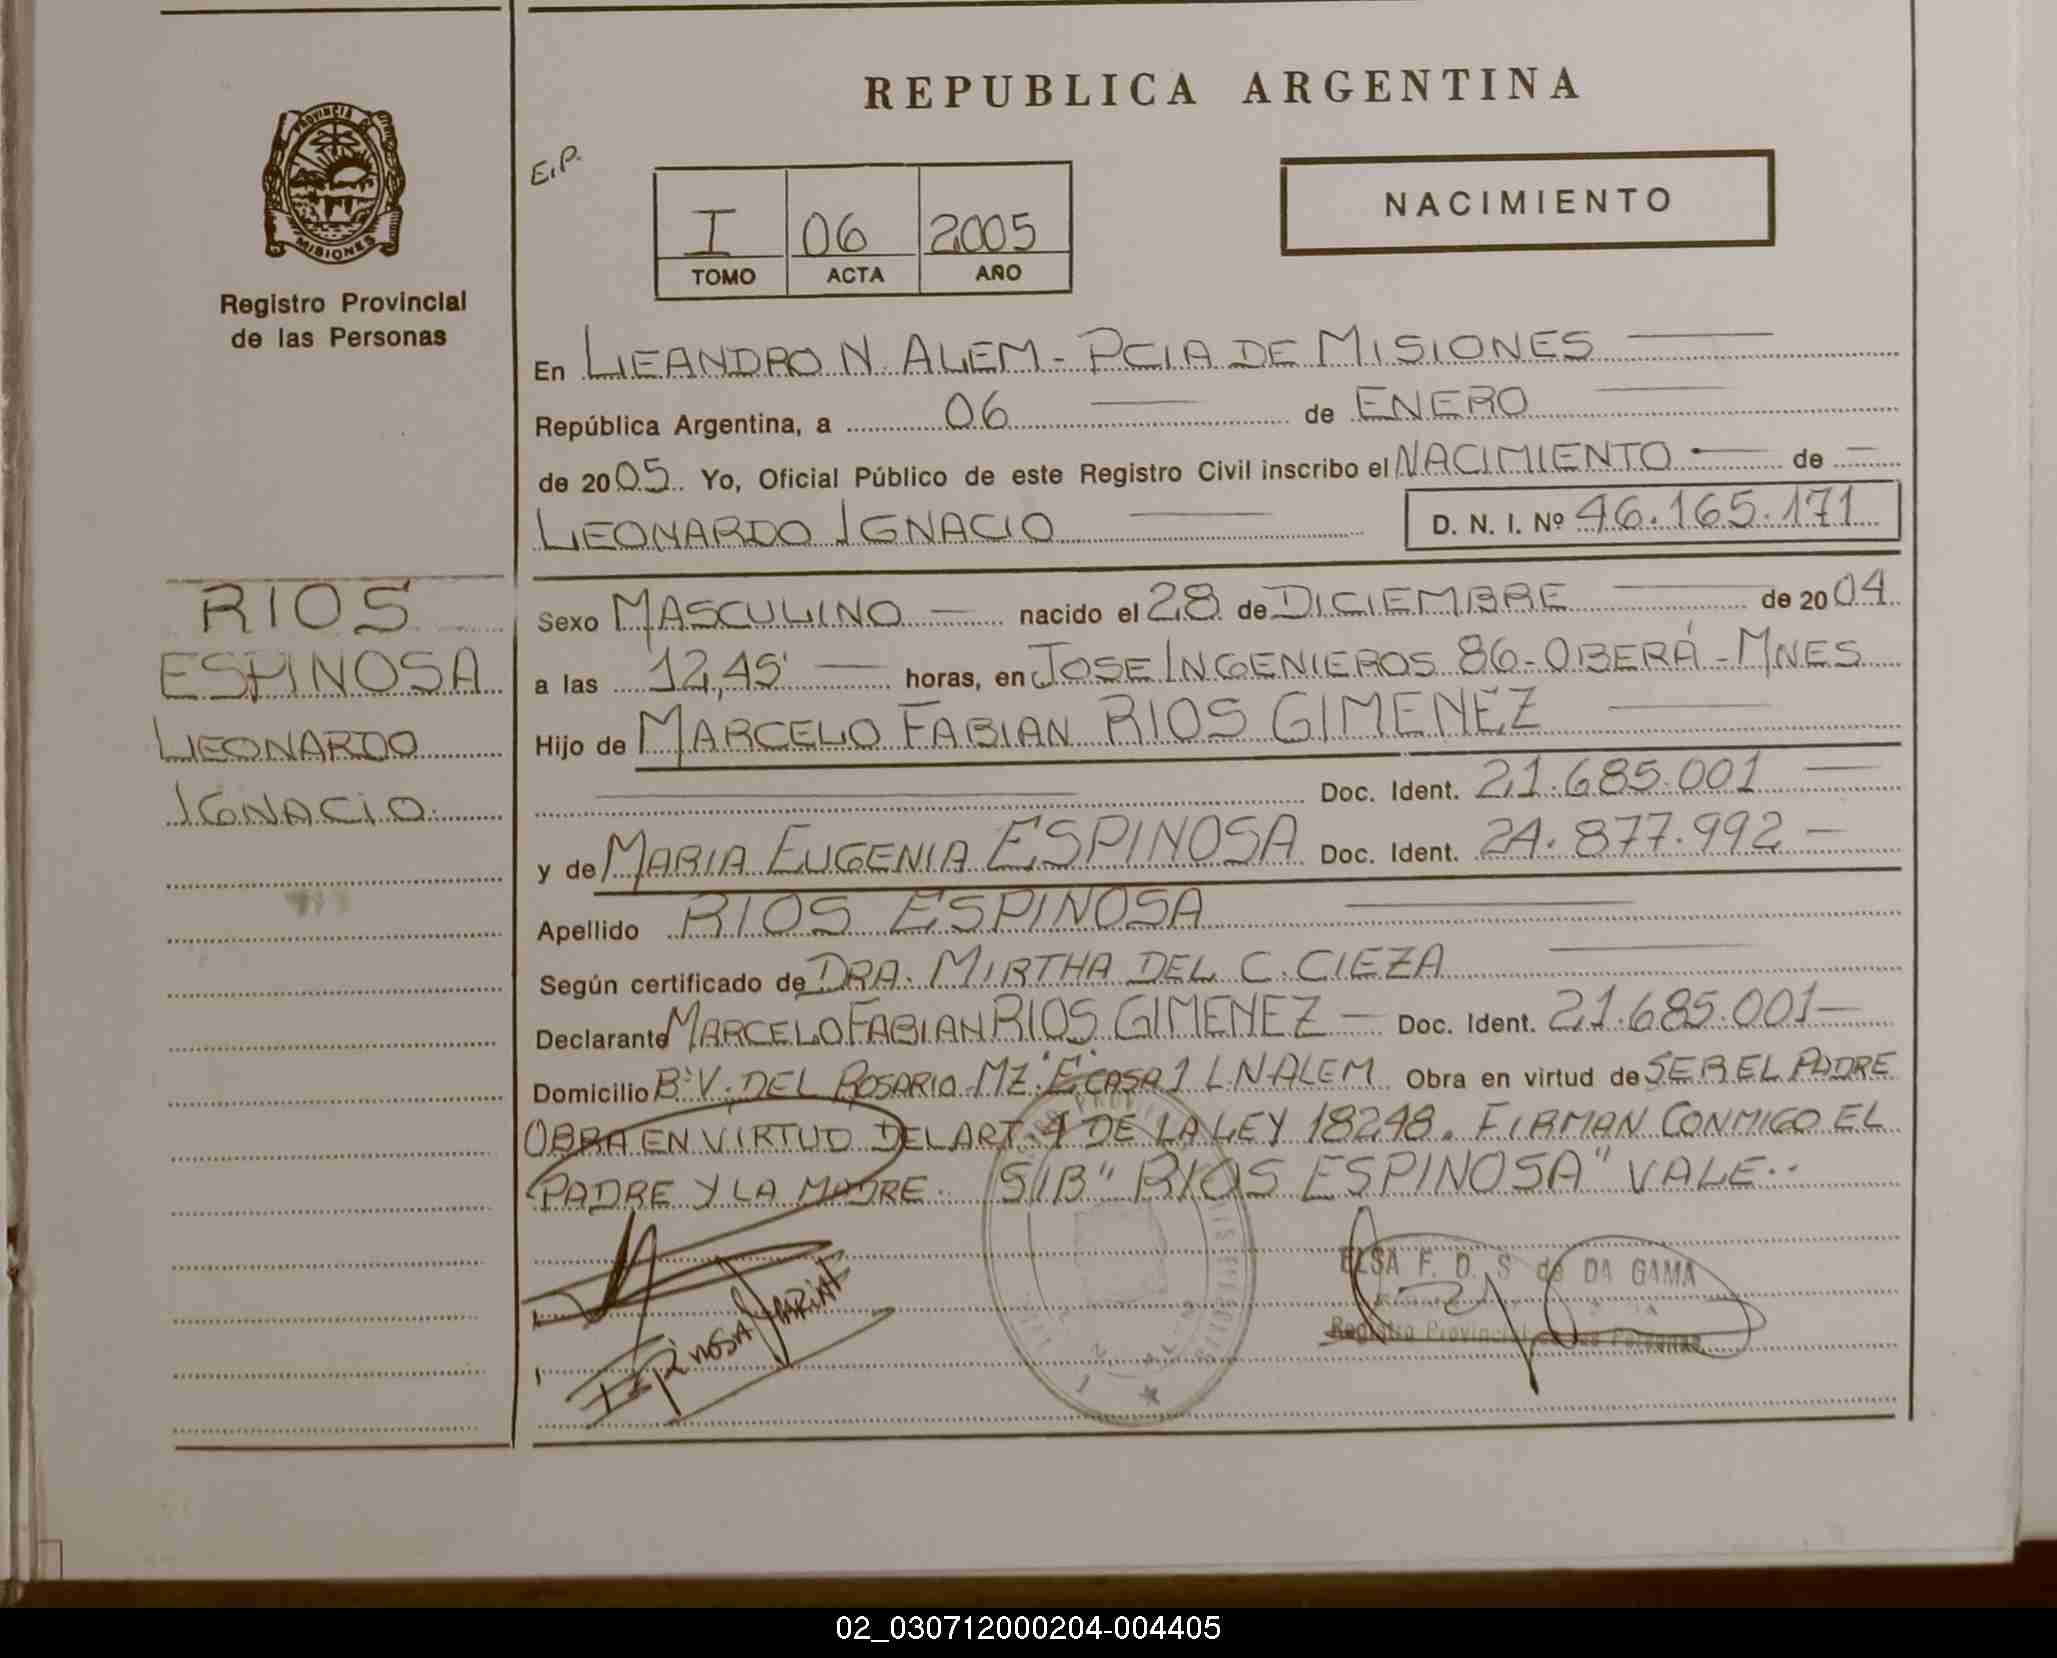 REPUBLICA ARGENTINA
PROVINCIA DE
MISIONES
Registro Provincial
de las Personas
E.P.
NACIMIENTO
I 06 2005
TOMO ACTA AÑO
En LEANDRO N. ALEM - PCIA DE MISIONES
República Argentina, a 06 de ENERO
de 2005. Yo, Oficial Público de este Registro Civil inscribo el NACIMIENTO de
LEONARDO IGNACIO D. N. I. Nº 46.165.171
RIOS
ESPINOSA
LEONARDO
IGNACIO
Sexo MASCULINO nacido el 28 de DICIEMBRE de 2004
a las 12,45' horas, en JOSE INGENIEROS 86 - OBERÁ - MNES
Hijo de MARCELO FABIAN RIOS GIMENEZ
Doc. Ident. 21.685.001
y de MARIA EUGENIA ESPINOSA Doc. Ident. 24.877.992
Apellido RIOS ESPINOSA
Según certificado de DRA. MIRTHA DEL C. CIEZA
Declarante MARCELO FABIAN RIOS GIMENEZ Doc. Ident. 21.685.001
Domicilio Bº V. DEL ROSARIO - MZ. "E" CASA 1 L N ALEM Obra en virtud de SER EL PADRE
OBRA EN VIRTUD DEL ART. 4 DE LA LEY 18248. FIRMAN CONMIGO EL
PADRE Y LA MADRE. S/B "RIOS ESPINOSA" VALE..
ELSA F. D. S. de DA GAMA
Registro Provincial de las Personas
02_030712000204-004405